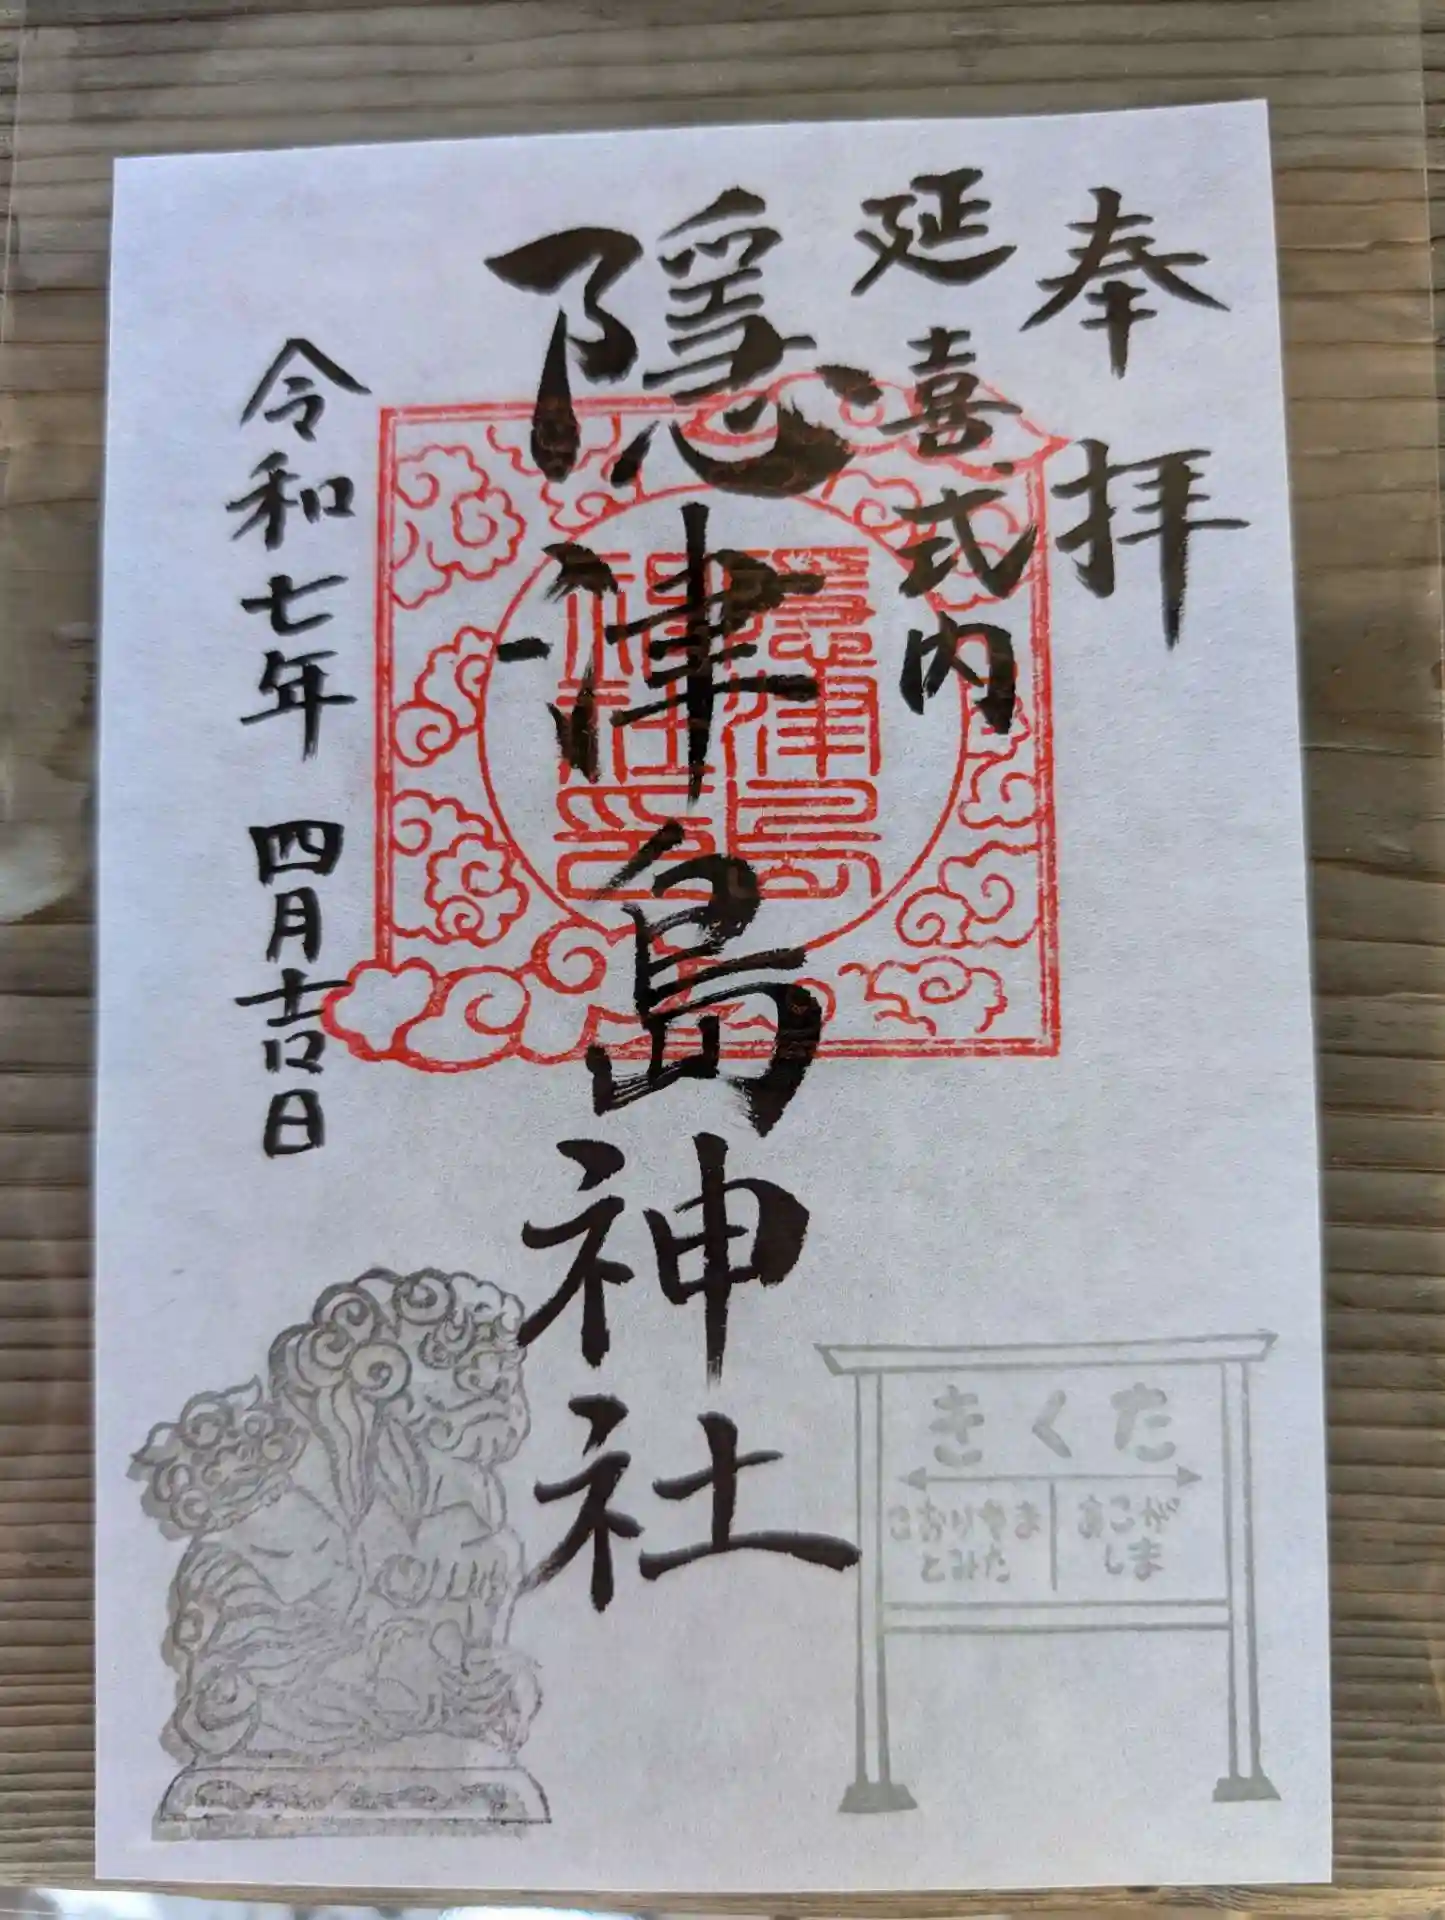 奉拝
延喜式内
隠津島神社
隠津島
神社印
令和七年 四月吉日
きくた
こおりやま
とみた
あこが
しま